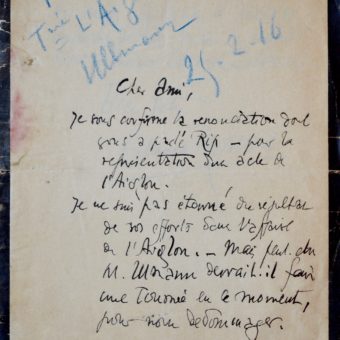 L'Aig
Ullmann
25.2.16
Cher ami,
Je vous confirme la renonciation dont
vous a parlé Rip – pour la
représentation d'un acte de
l'Aiglon.
Je ne suis pas étonné du résultat
de vos efforts dans l'affaire
de l'Aiglon. – Mais peut-
M. Ullmann devrait-il faire
une Tournée en ce moment,
pour nous dédommager.